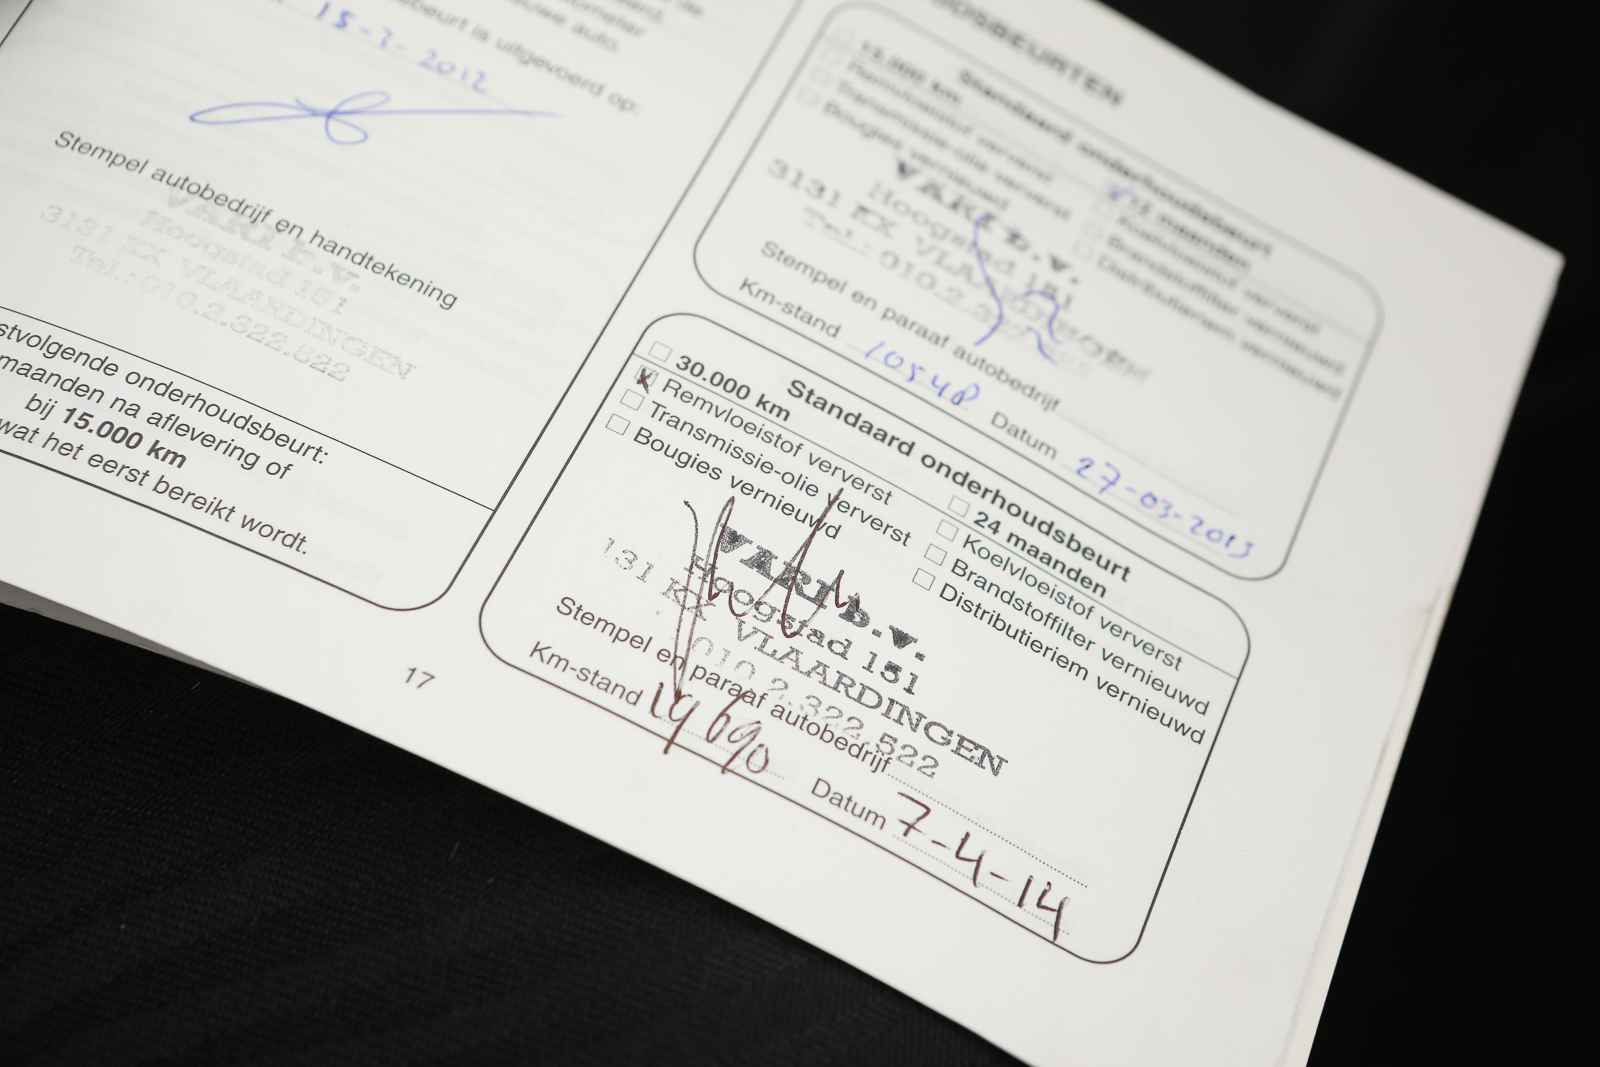 auto.
beurt is uitgevoerd op:
15-2-2012
Stempel autobedrijf en handtekening
VARI b.v.
Hoogstad 151
3131 KX VLAARDINGEN
Tel.: 010.2.322.522
stvolgende onderhoudsbeurt:
maanden na aflevering of
bij 15.000 km
wat het eerst bereikt wordt.
17
Standaard onderhoudsbeurt
15.000 km
12 maanden
Remvloeistof ververst
Transmissie-olie ververst
Bougies vernieuwd
Koelvloeistof ververst
Brandstoffilter vernieuwd
Distributieriem vernieuwd
VARI b.v.
Hoogstad 151
3131 KX VLAARDINGEN
Tel.: 010.2.322
Stempel en paraaf autobedrijf
Km-stand 10548 Datum 27-03-2013
Standaard onderhoudsbeurt
30.000 km
24 maanden
Remvloeistof ververst
Transmissie-olie ververst
Bougies vernieuwd
Koelvloeistof ververst
Brandstoffilter vernieuwd
Distributieriem vernieuwd
VARI b.v.
Hoogstad 151
131 KX VLAARDINGEN
010.2.322.522
Stempel en paraaf autobedrijf
Km-stand 19690 Datum 7-4-14